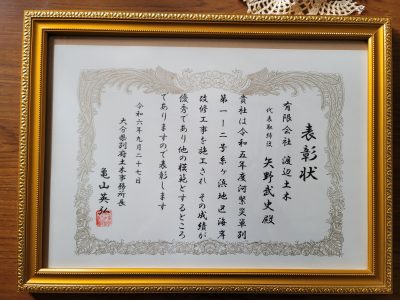 表彰状
有限会社 渡辺土木
代表取締役 矢野武史殿
貴社は令和五年度河緊災単別
第一ー二号糸ヶ浜地区海岸
改修工事を施工され その成績が
優秀であり他の模範とするところ
でありますので表彰します
令和六年九月二十七日
大分県別府土木事務所長
亀山英弘